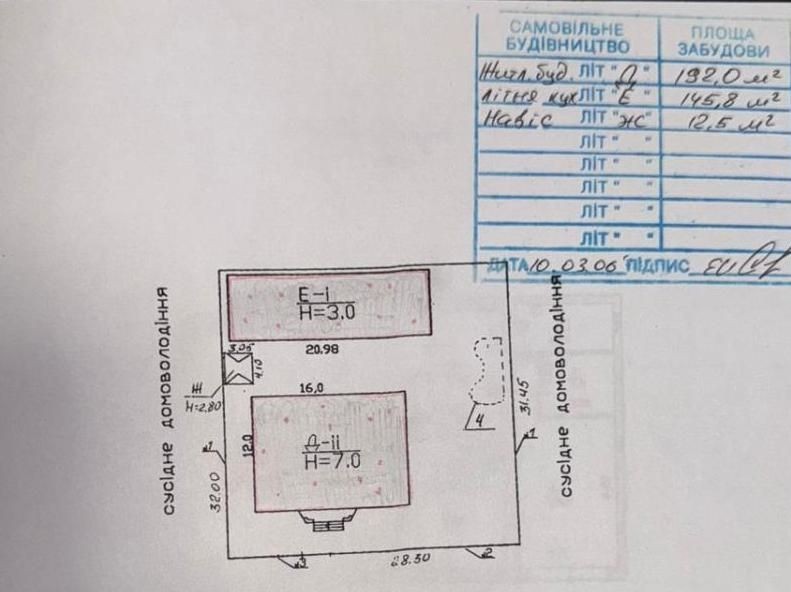 САМОВІЛЬНЕ БУДІВНИЦТВО ПЛОЩА ЗАБУДОВИ
Житл. буд. ЛІТ "Д" 192,0 м²
Літня кух ЛІТ "Е" 145,8 м²
Навіс ЛІТ "Ж" 12,5 м²
ЛІТ " "
ЛІТ " "
ЛІТ " "
ЛІТ " "
ЛІТ " "
ДАТА 10.03.06 ПІДПИС
СУСІДНЕ ДОМОВОЛОДІННЯ
СУСІДНЕ ДОМОВОЛОДІННЯ
Е-і
Н=3.0
20.98
3.05
4.10
Ж
Н=2.80
16,0
12.0
Д-іі
Н=7.0
4
31.45
32.00
№1
1
№3
28.50
2